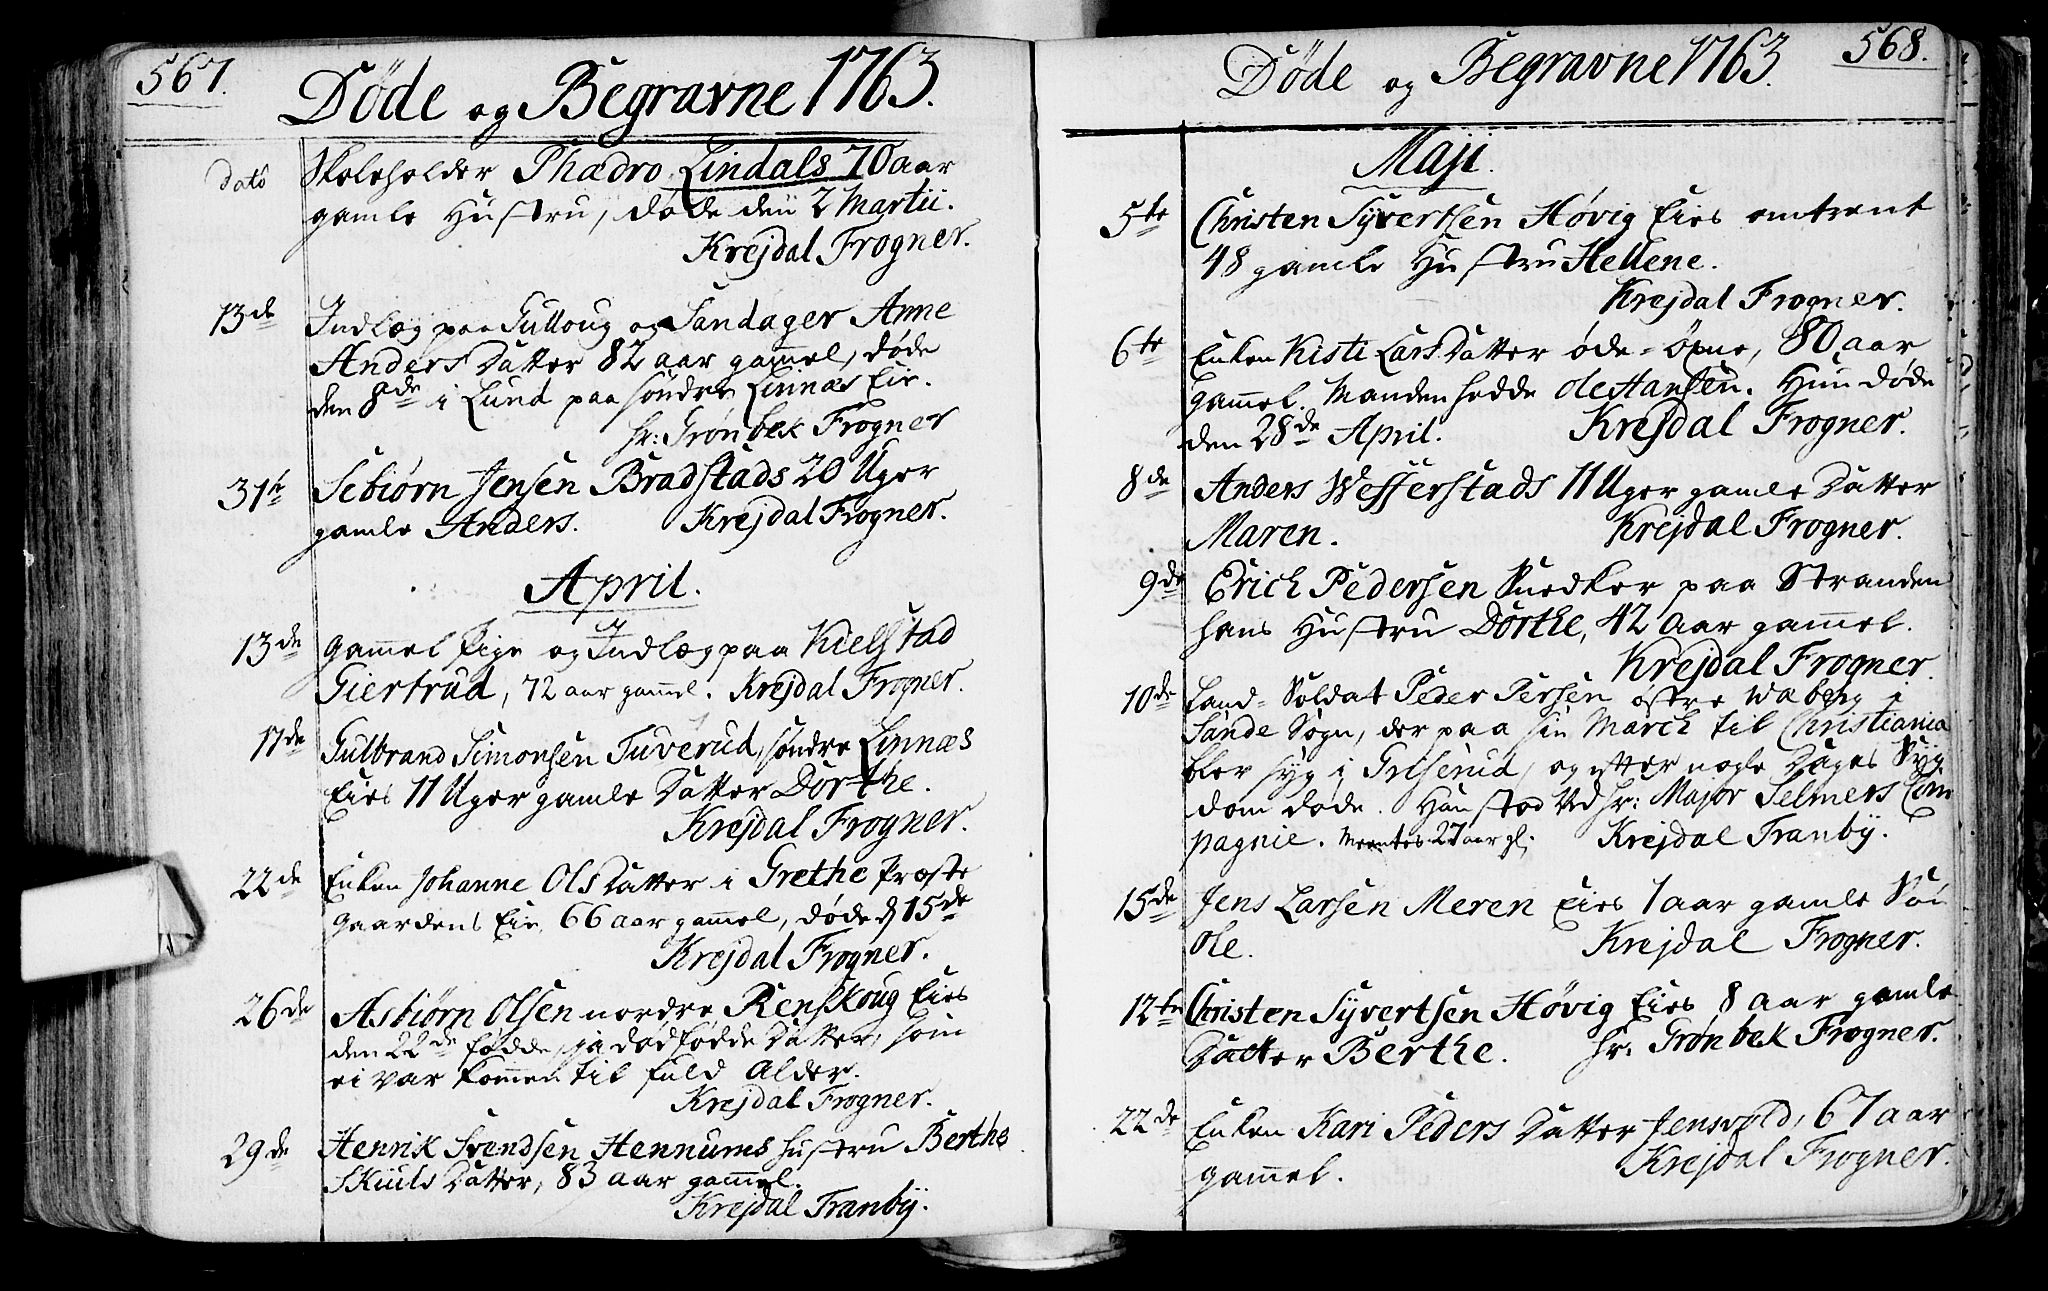 567.
Døde og Begravne 1763.
Dato Skoleholder Phædro Lindals 70 aar
gamle Hustru, døde den 2 Martii.
Krejdal Frogner.
13de Indlæg paa Gulloug og Sandager Anne
Anders Datter 82 aar gam̄el, døde
den 8de i Lund paa søndre Linnæs Eie.
Hr: Grønbek Frogner
31te Sebiørn Jensen Bradstads 20 Uger
gamle Anders. Krejdal Frogner.
April.
13de Gam̄el Pige og Indlæg paa Kielstad
Giertrud, 72 aar gam̄el. Krejdal Frogner.
17de Gulbrand Simonsen Tuverud, søndre Linnæs
Eies 11 Uger gamle Datter Dorthe.
Krejdal Frogner.
22de Enken Johanne Ols Datter i Grethe Præste
Gaardens Eie, 66 aar gam̄el, døde d 15de
Krejdal Frogner.
26de Asbiørn Olsen nordre Renskoug Eies
den 22de fødde, ja dødfødde Datter, som
ei var kom̄en til fuld Alder.
Krejdal Frogner.
29de Henrik Svendsen Hennums Hustru Berthe
Skiuls Datter, 83 aar gam̄el.
Krejdal Tranbÿ.
568.
Døde og Begravne 1763.
Maji.
5te Christen Syvertsen Høvig Eies omtrent
48 gamle Hustru Hellene.
Krejdal Frogner.
6te Enken Kisti Lars Datter øde-Öxne, 80 aar
gam̄el. Manden hedde Ole Hansen. Hun døde
den 28de April. Krejdal Frogner.
8de Anders Wefferstads 11 Uger gamle Datter
Maren. Krejdal Frogner.
9de Erich Pedersen Snedker paa Stranden
hans Hustru Dorthe, 42 Aar gam̄el.
Krejdal Frogner.
10de Land-Soldat Peder Persen østre Waberg i
Sande Sogn, der paa sin March til Christiania
blev syg i Griserud, og efter nogle Dages Syg
dom døde. Han stod ved Hr: Major Selmers Com
pagnie. Meentes 27 aar gl. Krejdal Tranbÿ.
15de Jens Larsen Meren Eies 1 aar gamle Søn
Ole. Krejdal Frogner.
12te Christen Syvertsen Høvig Eies 8 aar gamle
Datter Berthe. Hr: Grønbek Frogner.
22de Enken Kari Peders Datter Jensvold, 67 aar
gam̄el. Krejdal Frogner.